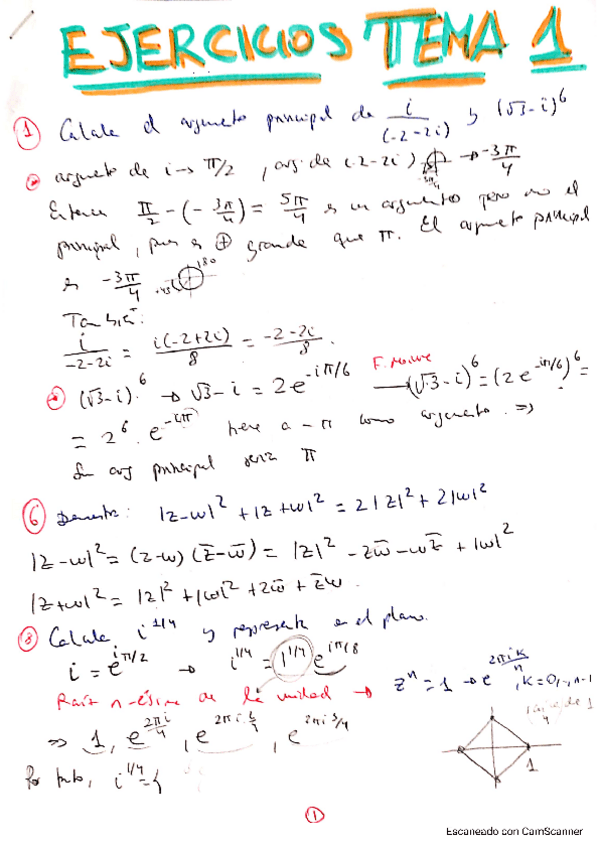 EJERCICIOS TEMA 1
① Calcula el argumento principal de i/(-2-2i) y (√3-i)^6
argumento de i → π/2, arg. de (-2-2i) → -3π/4
Entonces π/2 - (-3π/4) = 5π/4 es un argumento pero no el
principal, pues es ⊕ grande que π. El argumento principal
es -3π/4
También:
i/(-2-2i) = i(-2+2i)/8 = (-2-2i)/8.
(√3-i)^6 → √3-i = 2e^(-iπ/6) F. Moivre → (√3-i)^6 = (2e^(-iπ/6))^6 =
= 2^6 · e^(-iπ) tiene a -π como argumento ⇒
Su arg principal sería π
⑥ Demuestra: |z-w|² + |z+w|² = 2|z|² + 2|w|²
|z-w|² = (z-w)(z̄-w̄) = |z|² - zw̄ - wz̄ + |w|²
|z+w|² = |z|² + |w|² + zw̄ + z̄w
⑧ Calcula i^(1/4) y representa en el plano.
i = e^(iπ/2) → i^(1/4) = 1^(1/4) e^(iπ/8)
Raíz n-ésima de la unidad → z^n = 1 → e^(2πik/n), k=0,..,n-1
⇒ 1, e^(2πi/4), e^(2πi·2/4), e^(2πi·3/4)
1
Por tanto, i^(1/4) = {
①
Escaneado con CamScanner